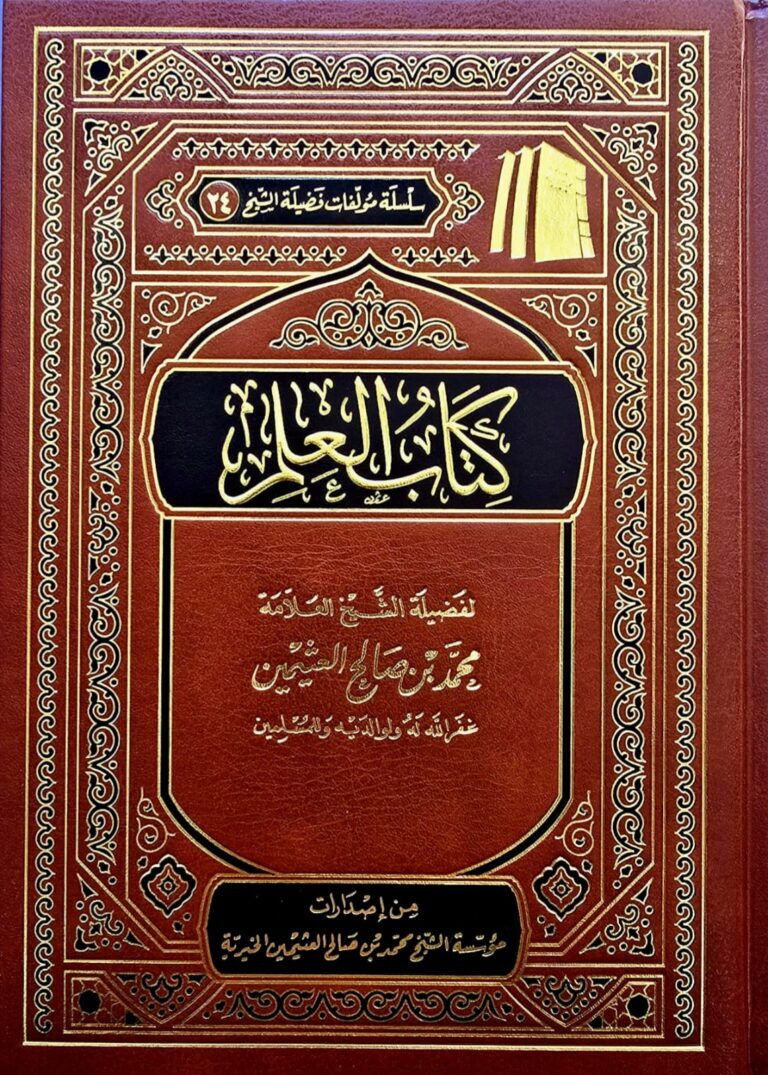 سِلْسِلَة مُؤلّفات فَضيلَة الشّيْخ ٢٤
كِتَابُ العِلمِ
لفَضيلَة الشَّيْخ العَلّامَة
محمّد بْن صَالح العثيمين
غفَر اللّه لَهُ ولوالدَيْه وَللمُسْلِمين
مِن إصْدَارات
مؤسّسة الشّيْخ محمّد بْن صَالح العثيمين الخيريّة